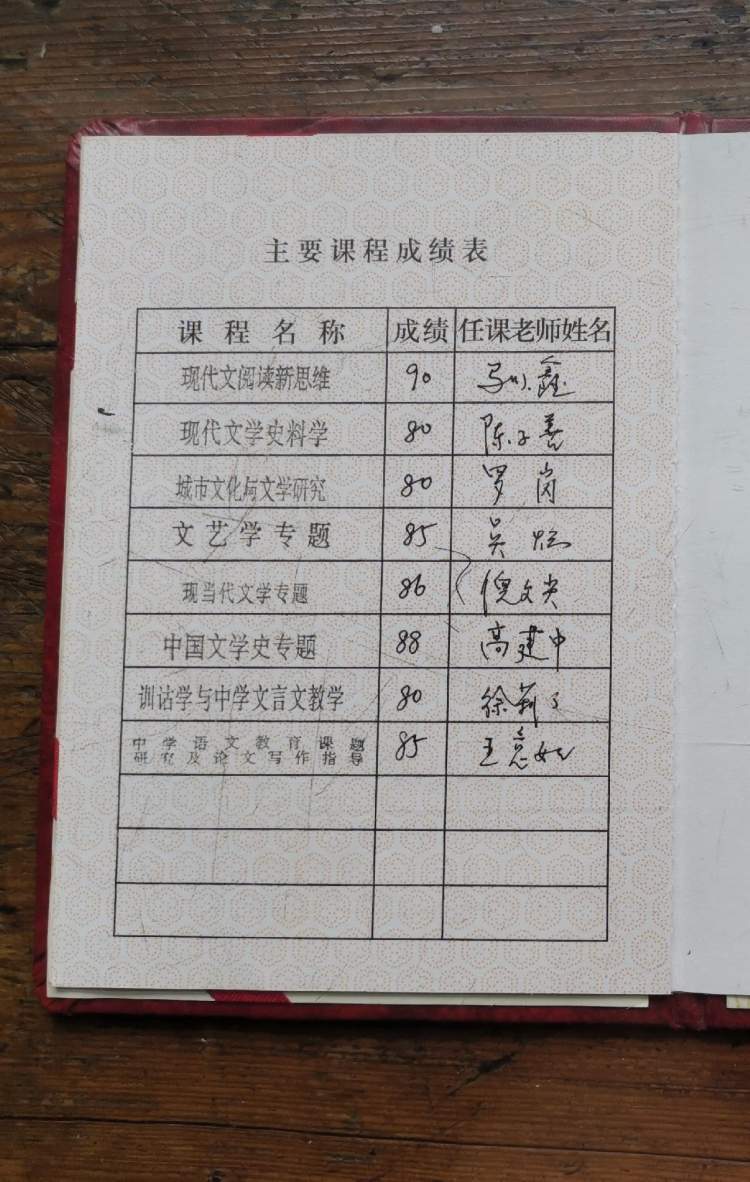 主要课程成绩表
课程名称 成绩 任课老师姓名
现代文阅读新思维 90 鑫
现代文学史料学 80 陈子善
城市文化与文学研究 80 罗岗
文艺学专题 85 吴炫
现当代文学专题 86 倪文尖
中国文学史专题 88 高建中
训诂学与中学文言文教学 80 徐莉莉
中学语文教育课题
研究及论文写作指导 85 王意如